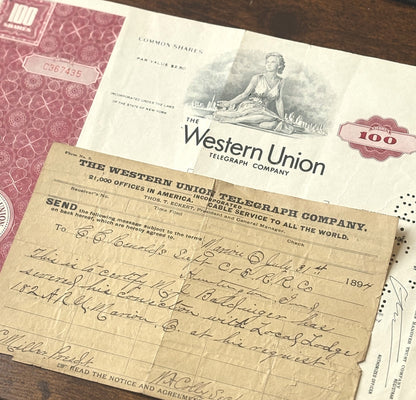 100
SHARES
COMMON SHARES
PAR VALUE $2.50
C367435
INCORPORATED UNDER THE LAWS
OF THE STATE OF NEW YORK
THE
Western Union
TELEGRAPH COMPANY
100
Form No. 2.
THE WESTERN UNION TELEGRAPH COMPANY.
INCORPORATED
21,000 OFFICES IN AMERICA. CABLE SERVICE TO ALL THE WORLD.
THOS. T. ECKERT, President and General Manager.
Receiver's No. Time Filed Check
SEND the following message subject to the terms
on back hereof, which are hereby agreed to.
Marion O July 31st 1894
To C. C. Supt C & E R R Co
Huntington
This is to certify W. Batzinger has
severed his connection with Local Lodge
182 A R U Marion, O. at his request
Miller Presdt
READ THE NOTICE AND AGREEMENT